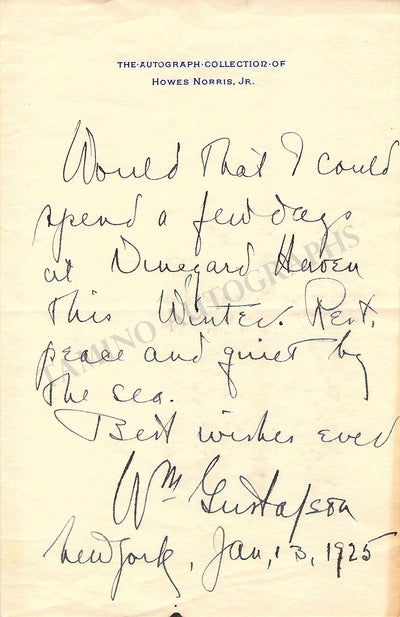 THE·AUTOGRAPH·COLLECTION·OF
HOWES NORRIS, JR.
Would that I could
spend a few days
at Vinegard Haven
this Winter. Rest,
peace and quiet by
the sea.
Best wishes ever
Wm Gustafson
New York, Jan, 13, 1925
TAMINO AUTOGRAPHS